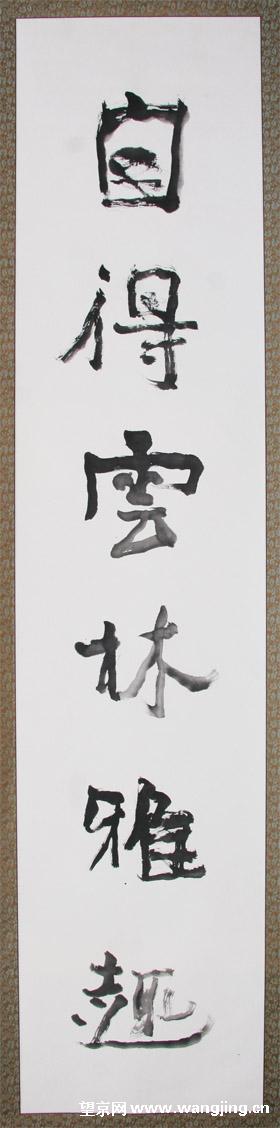 自得雲林雅趣
望京网 www.wangjing.cn